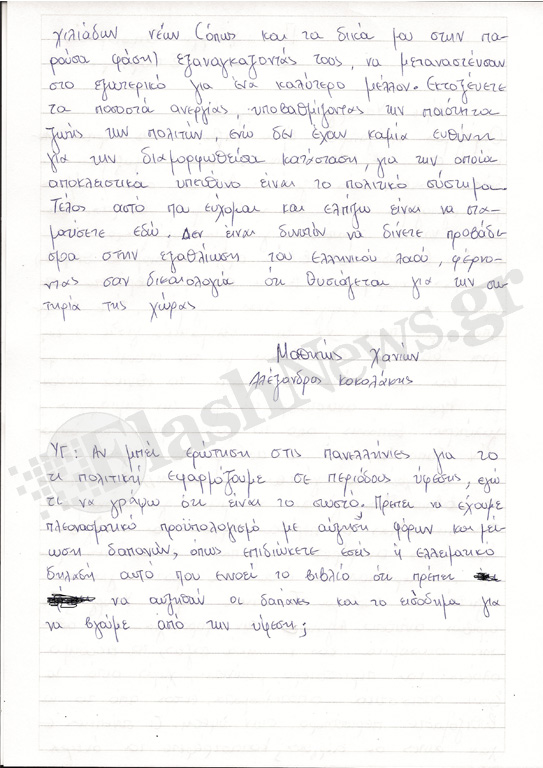 χιλιάδων νέων (όπως και τα δικά μου στην πα-
ρούσα φάση) εξαναγκαζοντάς τους, να μεταναστεύσουν
στο εξωτερικό για ένα καλύτερο μέλλον. Εκτοξεύετε
τα ποσοστά ανεργίας, υποβαθμίζοντας την ποιότητα
ζωής των πολιτών, ενώ δεν έχουν καμία ευθύνη
για την διαμορφωθείσα κατάσταση, για την οποία
αποκλειστικά υπεύθυνο είναι το πολιτικό σύστημα.
Τέλος αυτό πα εύχομαι και ελπίζω είναι να στα-
ματήσετε εδώ. Δεν είναι δυνατόν να δίνετε προβάδι
σμα στην εξαθλίωση του ελληνικού λαού, φέρνο-
ντας σαν δικαιολογία ότι θυσιάζεται για την σω
τηρία της χώρας
Μαθητής Χανίων
Αλέξανδρος Κοκολάκης
ΥΓ: Αν μπεί ερώτηση στις πανελλήνιες για το
τι πολιτική εφαρμόζουμε σε περιόδους ύφεσης, εγώ
τι να γράψω ότι είναι το σωστό. Πρέπει να έχουμε
πλεονασματικό προϋπολογισμό με αύξηση φόρων και μεί
ωση δαπανών, όπως επιδιώκετε εσείς ή ελλειματικό
δηλαδή αυτό που εννοεί το βιβλίο ότι πρέπει
να αυξηθούν οι δαπάνες και το εισόδημα για
να βγούμε από την ύφεση;
FlashNews.gr